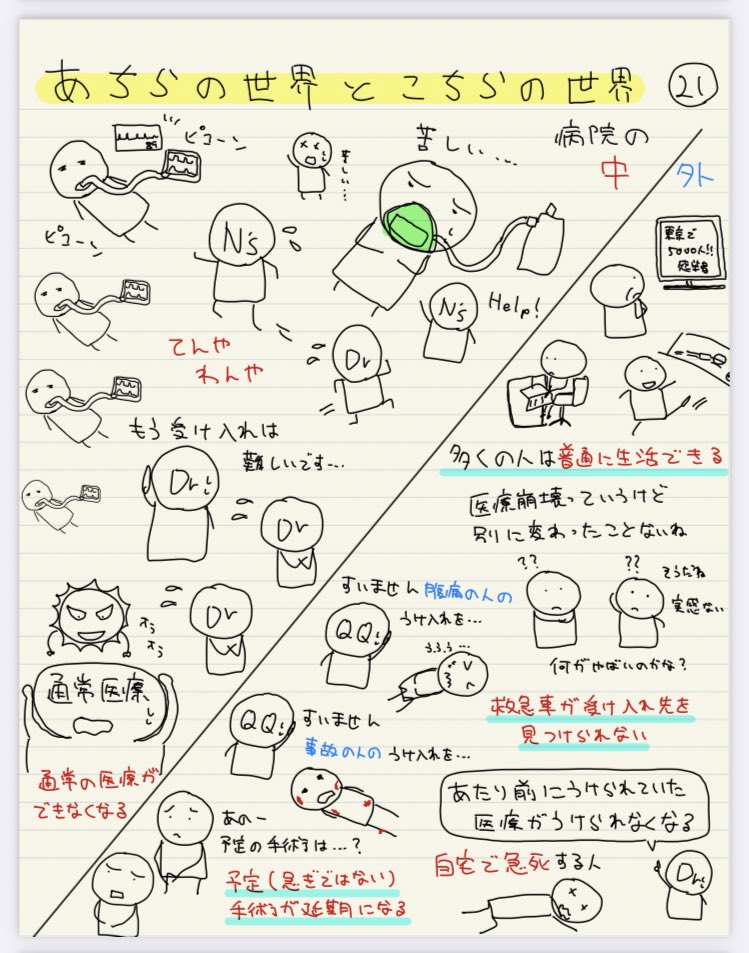 あちらの世界とこちらの世界 21
ピコーン
苦しい…
苦しい…
病院の
中 外
ピコーン
N's
東京で
5000人!!
感染者
N's
Help!
てんや
わんや
Dr
もう受け入れは
難しいです…
Dr
Dr
多くの人は普通に生活できる
医療崩壊っていうけど
別に変わったことないね
Dr
オラ
オラ
すいません腹痛の人の
うけ入れを…
QQ
??
??
そうだね
実感ない
何がやばいのかな?
通常医療
通常の医療が
できなくなる
QQ
すいません
事故の人のうけ入れを…
救急車が受け入れ先を
見つけられない
あのー
予定の手術は…?
予定(急ぎではない)
手術が延期になる
あたり前にうけられていた
医療がうけられなくなる
自宅で急死する人
Dr